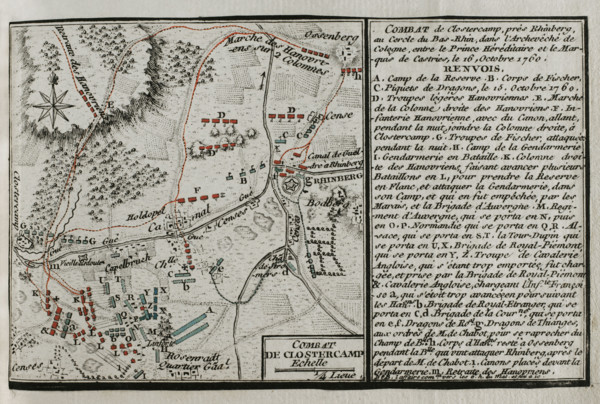 Marche des Hanovre-
ens sur 2 Colomnes
Ossenberg
D D
D D
Canal de Guel-
dre à Rhinberg
RHINBERG
Holdepel
Canal
Capelbruch
Rosenradt
Quartier Gñal
Clostercamp
COMBAT
DE CLOSTERCAMP
Echelle
¼ Lieue
COMBAT de Clostercamp, prés Rhinberg,
au Cercle du Bas-Rhin, dans l'Archevêché de
Cologne, entre le Prince Héréditaire et le Mar-
quis de Castries, le 16, Octobre 1760.
RENVOIS.
A. Camp de la Reserve. B. Corps de Fischer,
C. Piquets de Dragons, le 15, Octobre 1760.
D. Troupes légeres Hanovriennes. E. Marche
de la Colomne, droite des Hanovriens. F. In-
fanterie Hanovrienne, avec du Canon, allant,
pendant la nuit, joindre la Colomne droite, à
Clostercamp. G. Troupes de Fischer, attaquées
pendant la nuit. H. Camp de la Gendarmerie
I. Gendarmerie en Bataille. K. Colomne droi-
te des Hanovriens, faisant avancer plusieurs
Bataillons en L, pour prendre la Reserve
en Flanc, et attaquer la Gendarmerie, dans
son Camp, et qui en fut empêchée, par les
Marais, et la Brigade d'Auvergne. M. Regi-
ment d'Auvergne, qui se porta en N, puis
en O. P. Normandie qui se porta en Q, R. Al-
sace, qui se porta en S, T. la Tour-Dupin qui
se porta en U, X. Brigade de Royal-Piémont,
qui se porta en Y, Z. Troupe de Cavalerie
Angloise, qui s'étant trop emportée, fut char-
gée, et prise par la Brigade de Royal-Piémont
&. Cavalerie Angloise, chargeant l'Inf.ie Françoi-
se a, qui s'étoit trop avancée en poursuivant
les b. Brigade de Royal-Etranger, qui se
porta en C, d. Brigade de la qui se porta
en e, f. Dragons de g. Dragons de Thianges,
aux ordres de M. de Chabot pour se raprocher du
Champ de h. Corps resté à Ossenberg
pendant la qui vint attaquer Rhinberg, après le
départ de M. de Chabot. Canons placés devant la
Gendarmerie. m. Retraite des Hanovriens.